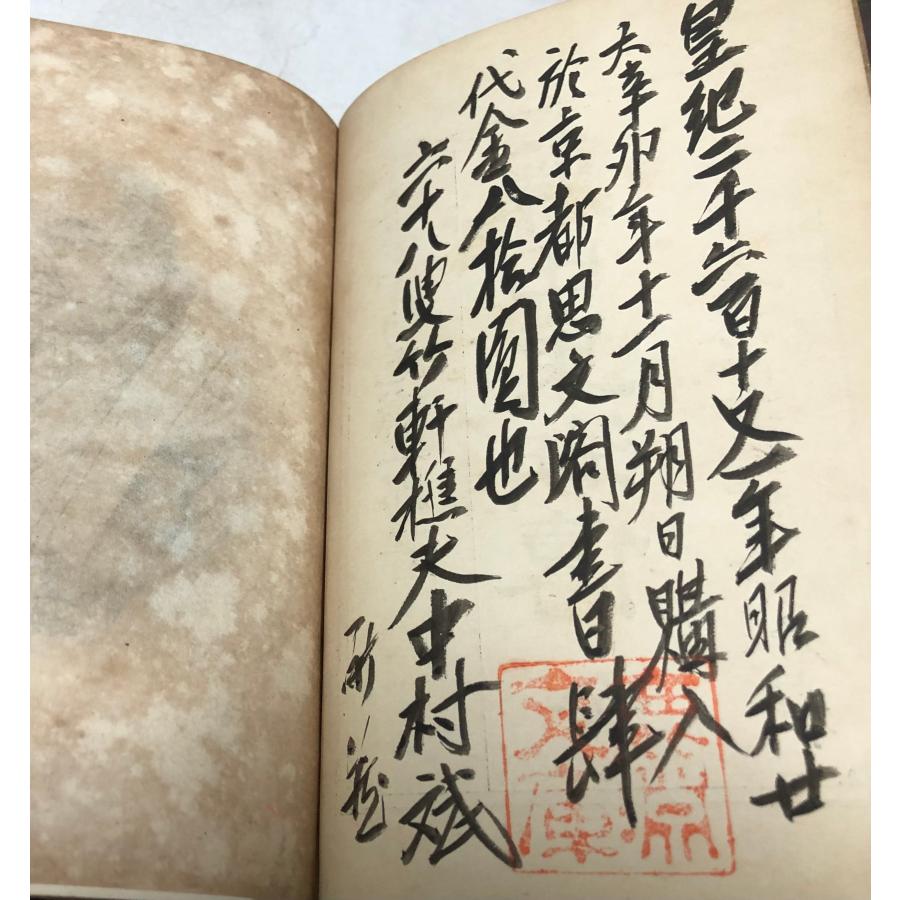 皇紀二千六百十又一年昭和廿
六辛卯年十一月朔日購入
於京都思文閣書肆
代金八拾圓也
六十八叟竹軒樵夫中村斌
所蔵
文庫